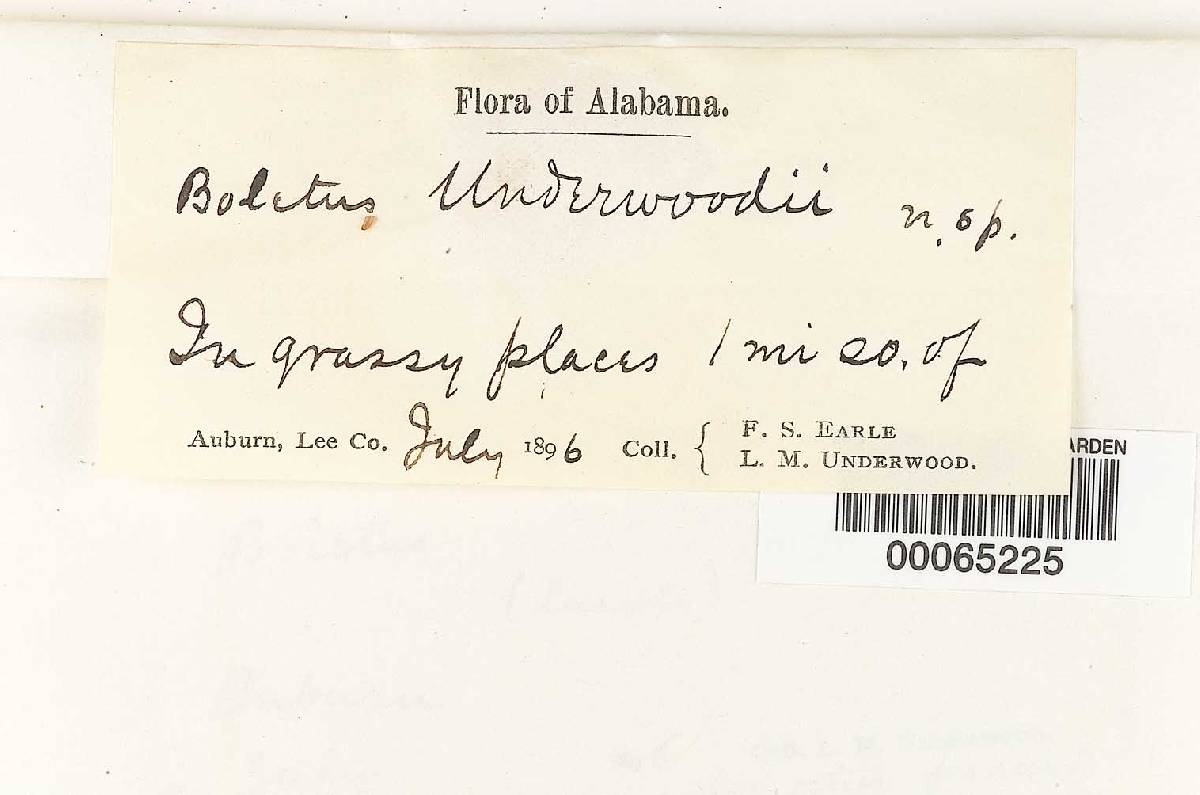 Flora of Alabama.
Boletus Underwoodii n. sp.
In grassy places 1 mi so. of
Auburn, Lee Co. July 1896 Coll. { F. S. EARLE
L. M. UNDERWOOD.
ARDEN
00065225